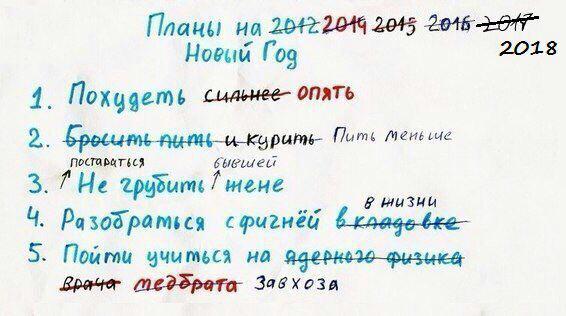 Планы на 2012 2014 2015 2016 2017
Новый Год 2018
1. Похудеть сильнее опять
2. Бросить пить и курить Пить меньше
постараться бывшей
3. Не грубить жене
в жизни
4. Разобраться с фигнёй в кладовке
5. Пойти учиться на ядерного физика
врача медбрата Завхоза